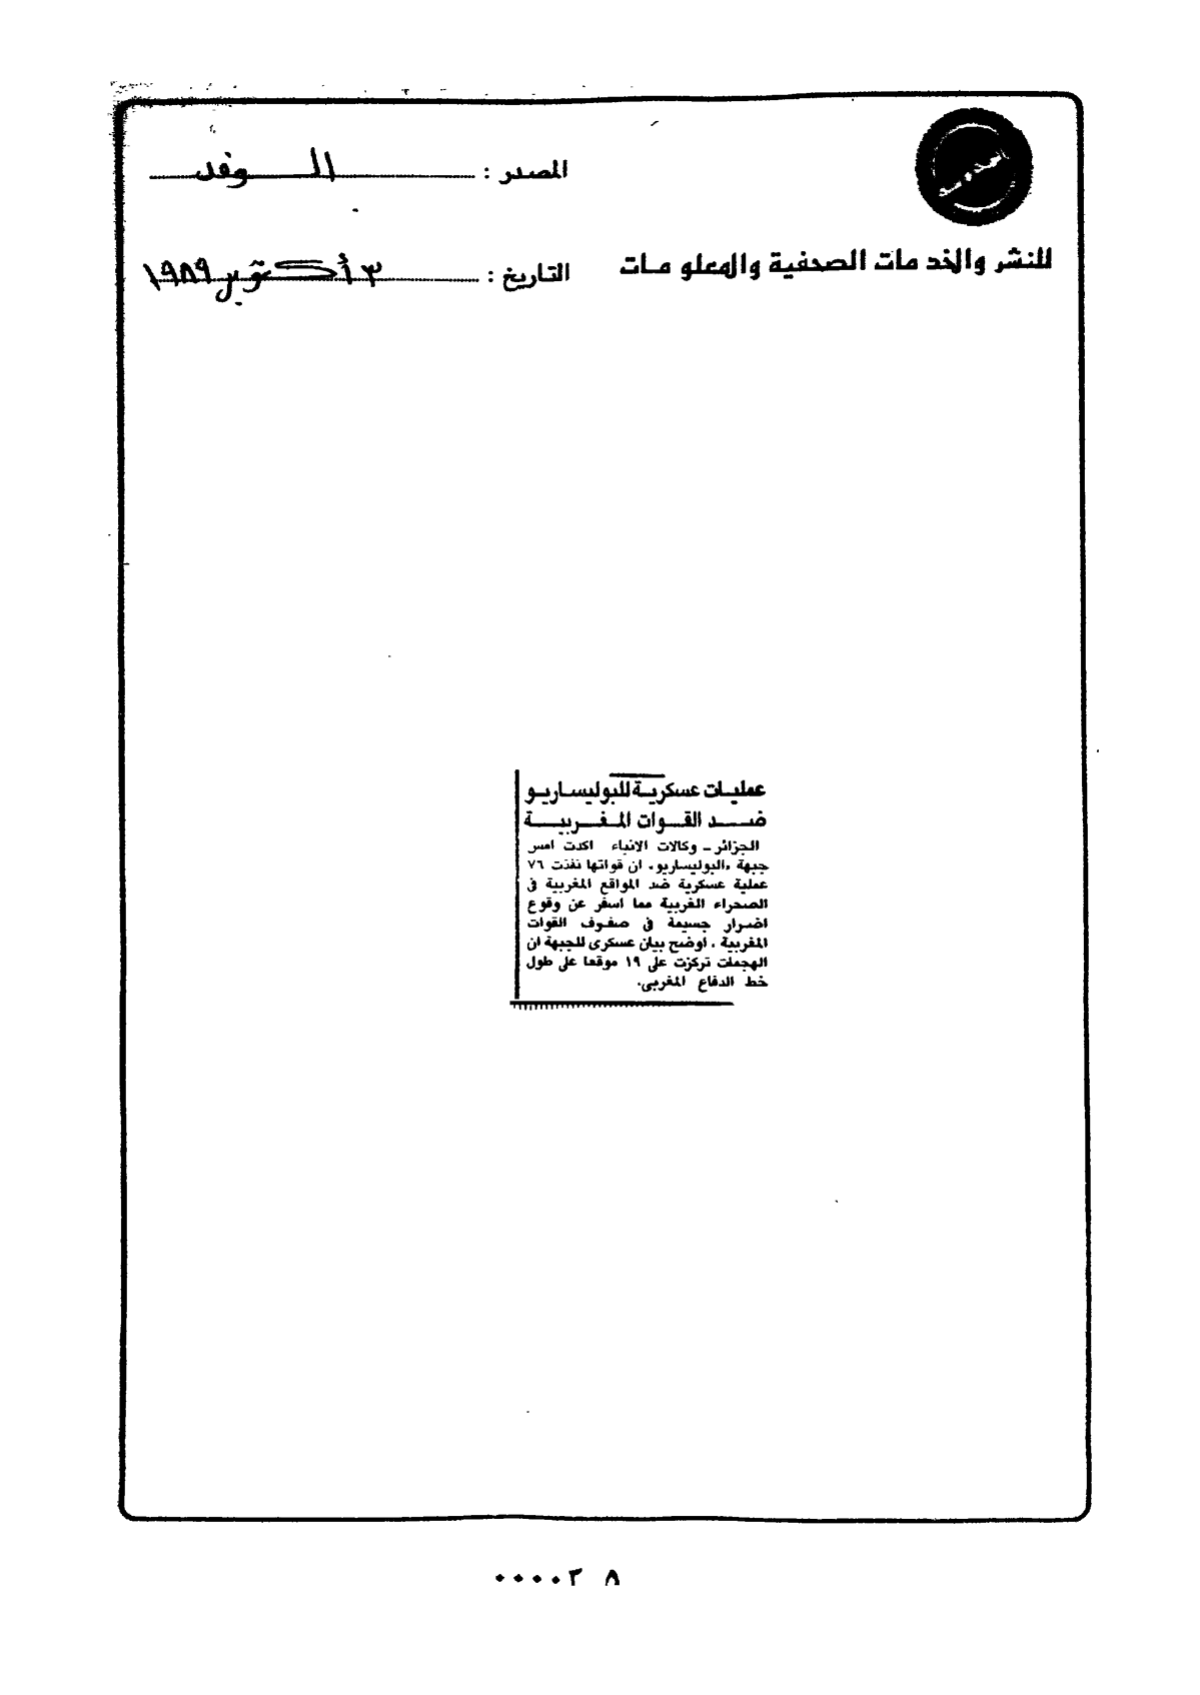 المصدر : الـــوفد
للنشر والخدمات الصحفية والمعلومات
التاريخ : ٣ أكتوبر ١٩٨٩
عمليات عسكرية للبوليساريو
ضد القوات المغربية
الجزائر ـ وكالات الانباء اكدت امس
جبهة «البوليساريو» ان قواتها نفذت ٧٦
عملية عسكرية ضد المواقع المغربية فى
الصحراء الغربية مما اسفر عن وقوع
اضرار جسيمة فى صفوف القوات
المغربية . اوضح بيان عسكرى للجبهة ان
الهجمات تركزت على ١٩ موقعا على طول
خط الدفاع المغربى.
٠٠٠٠٢٨